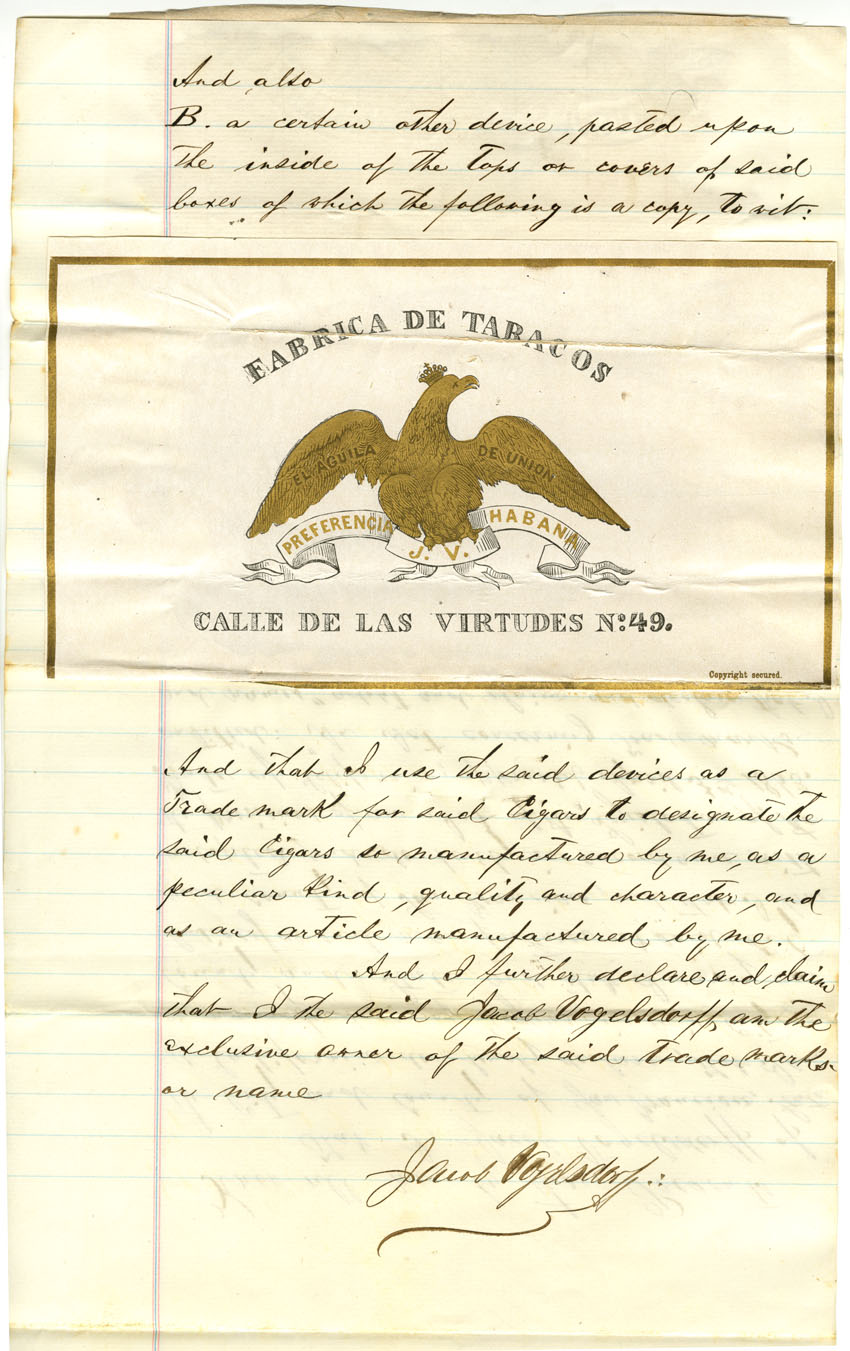 And also
B. a certain other device, pasted upon
the inside of the Tops or covers of said
boxes of which the following is a copy, to wit:
FABRICA DE TABACOS
EL AGUILA DE UNION
PREFERENCIA HABANA
J. V.
CALLE DE LAS VIRTUDES Nº 49.
Copyright secured.
And that I use the said devices as a
Trade mark for said Cigars to designate the
said Cigars so manufactured by me, as a
peculiar kind, quality and character, and
as an article manufactured by me.
And I further declare and claim
that I the said Jacob Vogelsdorff, am the
exclusive owner of the said trade marks
or name
Jacob Vogelsdorff